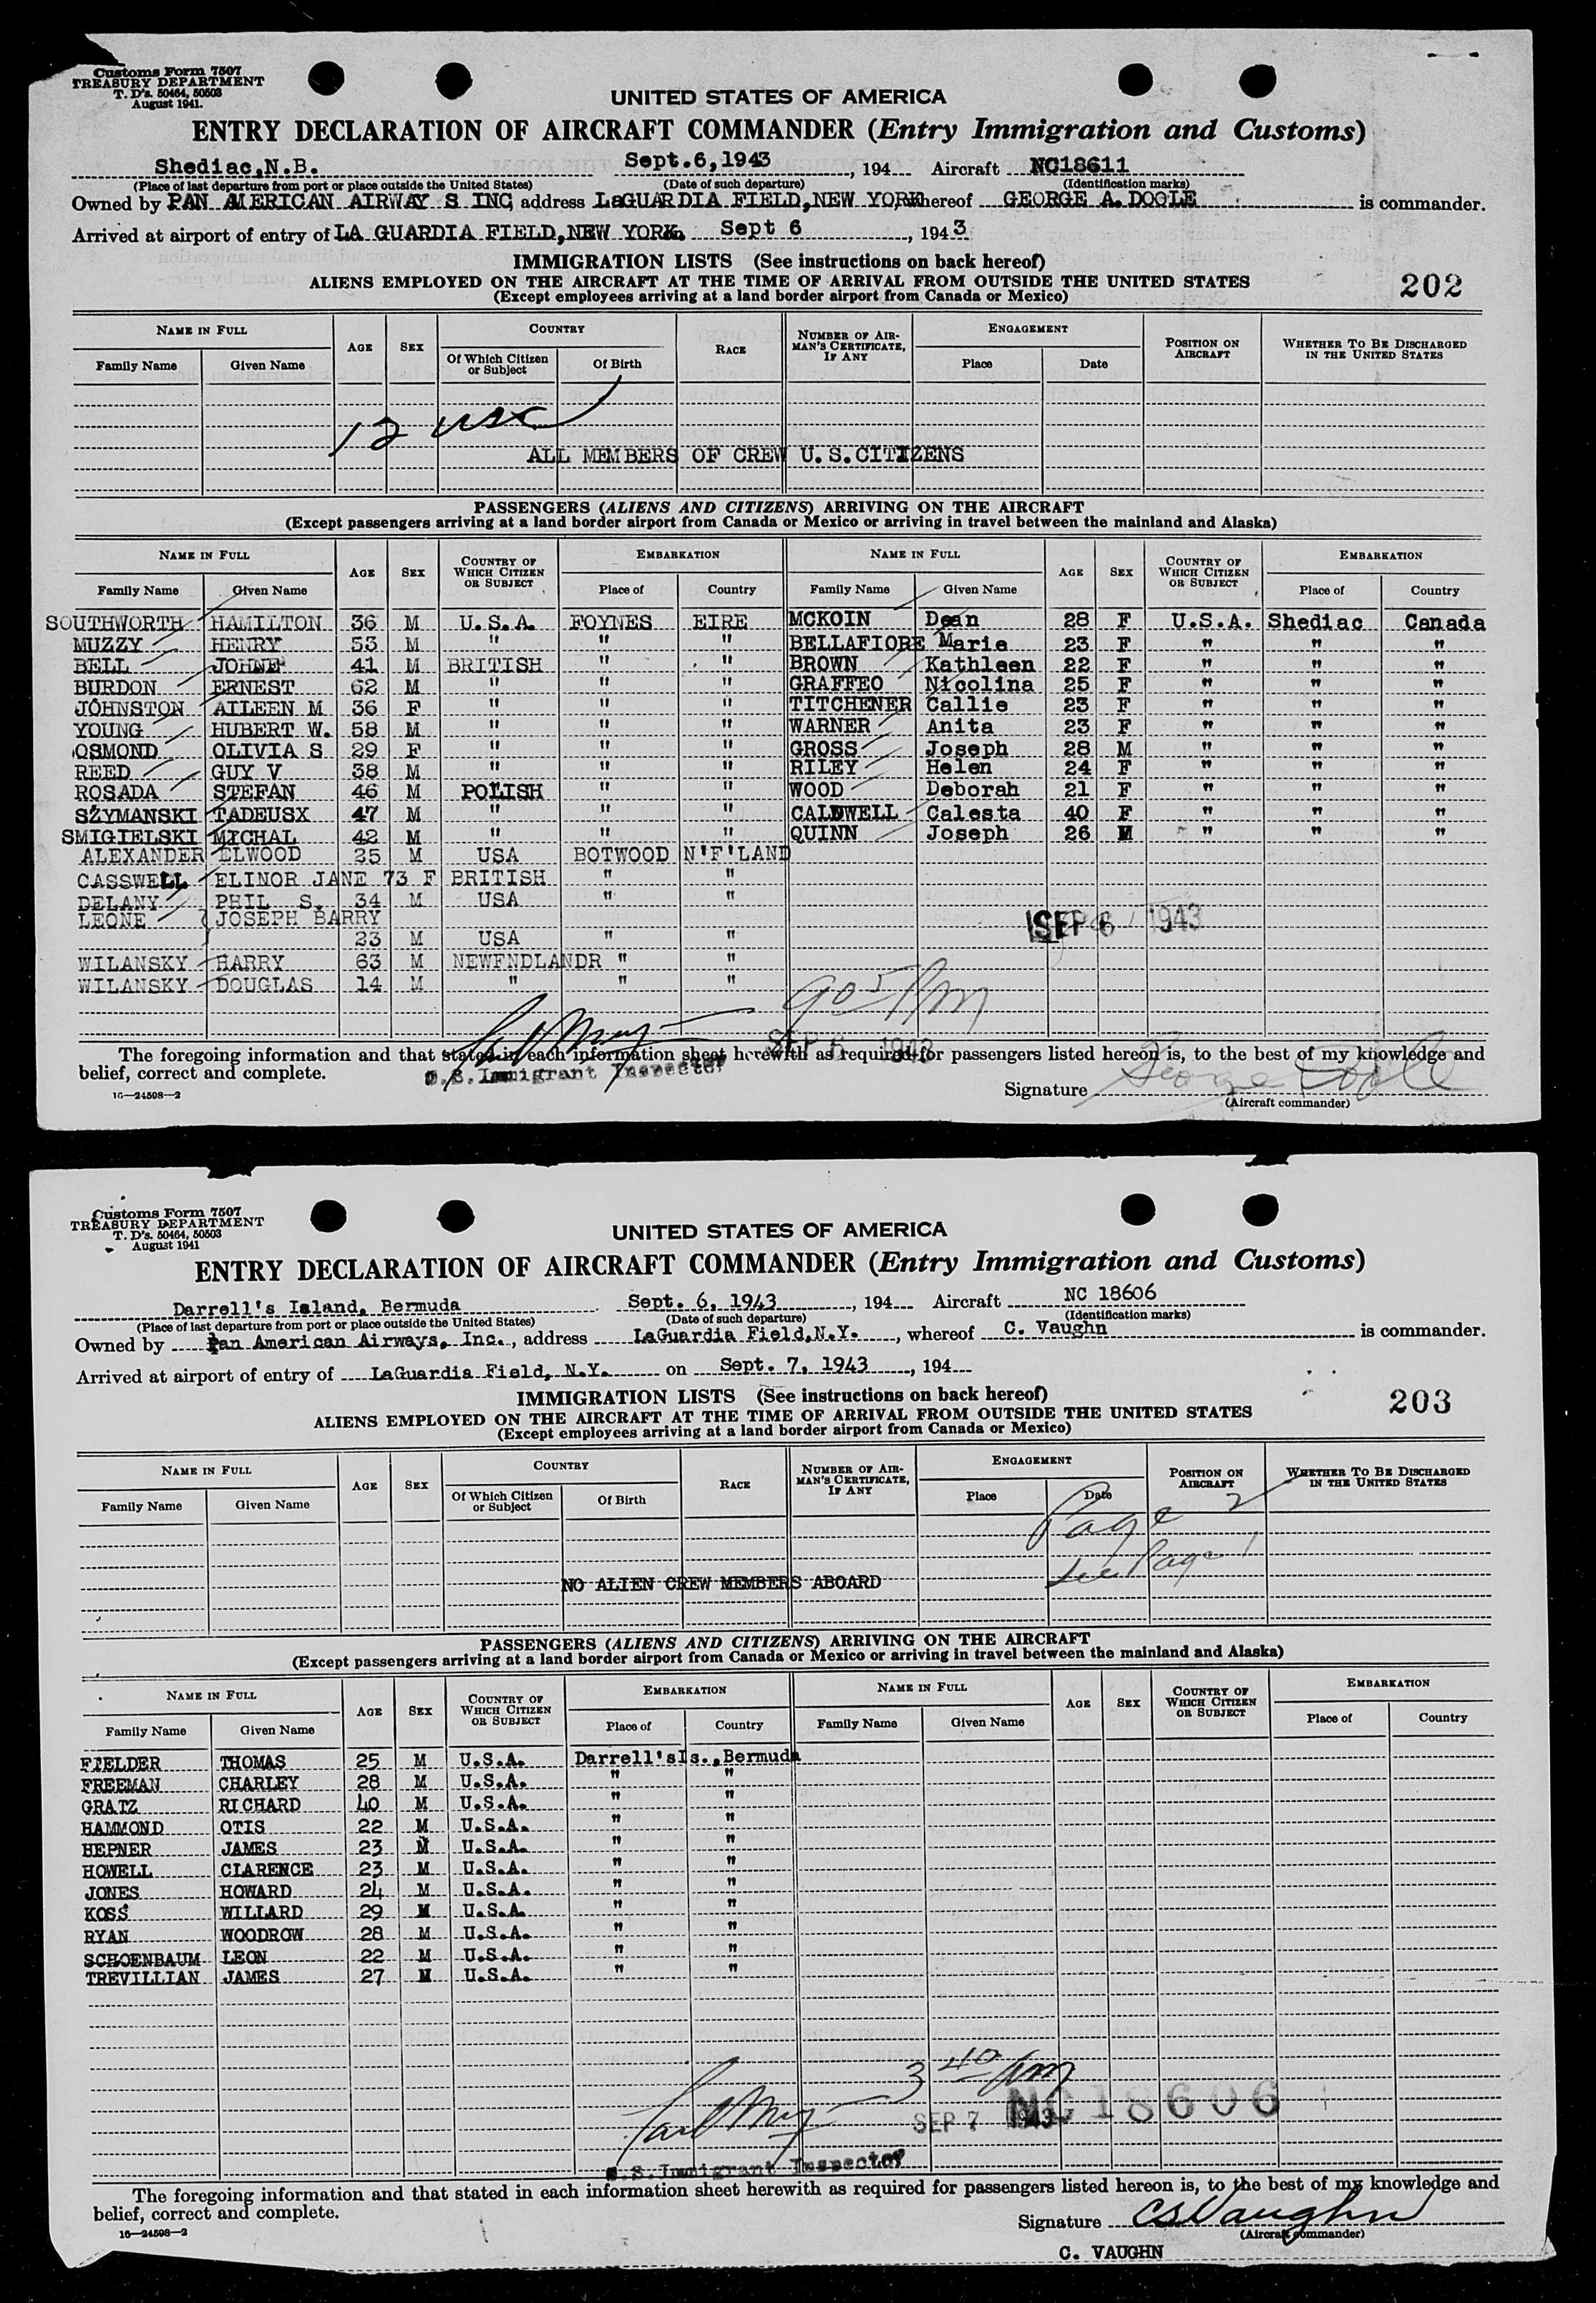 Customs Form 7507
TREASURY DEPARTMENT
T. D's. 50464, 50503
August 1941.
UNITED STATES OF AMERICA
ENTRY DECLARATION OF AIRCRAFT COMMANDER (Entry Immigration and Customs)
Shediac,N.B. Sept.6,1943, 194 Aircraft NC18611
(Place of last departure from port or place outside the United States) (Date of such departure) (Identification marks)
Owned by PAN AMERICAN AIRWAY S INC, address LaGUARDIA FIELD,NEW YORK whereof GEORGE A.DOOLE is commander.
Arrived at airport of entry of LA GUARDIA FIELD,NEW YORK, Sept 6, 1943
IMMIGRATION LISTS (See instructions on back hereof)
ALIENS EMPLOYED ON THE AIRCRAFT AT THE TIME OF ARRIVAL FROM OUTSIDE THE UNITED STATES
(Except employees arriving at a land border airport from Canada or Mexico)
202
NAME IN FULL AGE SEX COUNTRY RACE NUMBER OF AIRMAN'S CERTIFICATE, IF ANY ENGAGEMENT POSITION ON AIRCRAFT WHETHER TO BE DISCHARGED IN THE UNITED STATES
Family Name Given Name Of Which Citizen or Subject Of Birth Place Date
12 usc
ALL MEMBERS OF CREW U.S.CITIZENS
PASSENGERS (ALIENS AND CITIZENS) ARRIVING ON THE AIRCRAFT
(Except passengers arriving at a land border airport from Canada or Mexico or arriving in travel between the mainland and Alaska)
NAME IN FULL AGE SEX COUNTRY OF WHICH CITIZEN OR SUBJECT EMBARKATION NAME IN FULL AGE SEX COUNTRY OF WHICH CITIZEN OR SUBJECT EMBARKATION
Family Name Given Name Place of Country Family Name Given Name Place of Country
SOUTHWORTH HAMILTON 36 M U.S.A. FOYNES EIRE MCKOIN Dean 28 F U.S.A. Shediac Canada
MUZZY HENRY 53 M " " " BELLAFIORE Marie 23 F " " "
BELL JOHNE 41 M BRITISH " " BROWN Kathleen 22 F " " "
BURDON ERNEST 62 M " " " GRAFFEO Nicolina 25 F " " "
JOHNSTON AILEEN M 36 F " " " TITCHENER Callie 23 F " " "
YOUNG HUBERT W. 58 M " " " WARNER Anita 23 F " " "
OSMOND OLIVIA S 29 F " " " GROSS Joseph 28 M " " "
REED GUY V 38 M " " " RILEY Helen 24 F " " "
ROSADA STEFAN 46 M POLISH " " WOOD Deborah 21 F " " "
SZYMANSKI TADEUSX 47 M " " " CALDWELL Calesta 40 F " " "
SMIGIELSKI MICHAL 42 M " " " QUINN Joseph 26 M " " "
ALEXANDER ELWOOD 25 M USA BOTWOOD N'F'LAND
CASSWELL ELINOR JANE 73 F BRITISH " "
DELANY PHIL S. 34 M USA " "
LEONE JOSEPH BARRY
23 M USA " "
SEP 6 1943
WILANSKY HARRY 63 M NEWFNDLANDR " "
WILANSKY DOUGLAS 14 M " " "
905 Pm
SEP 6 1943
The foregoing information and that stated in each information sheet herewith as required for passengers listed hereon is, to the best of my knowledge and
belief, correct and complete.
U.S.Immigrant Inspector
Signature George Doole
16—24598—2
(Aircraft commander)
Customs Form 7507
TREASURY DEPARTMENT
T. D's. 50464, 50503
August 1941
UNITED STATES OF AMERICA
ENTRY DECLARATION OF AIRCRAFT COMMANDER (Entry Immigration and Customs)
Darrell's Island, Bermuda Sept. 6, 1943, 194 Aircraft NC 18606
(Place of last departure from port or place outside the United States) (Date of such departure) (Identification marks)
Owned by Pan American Airways, Inc., address LaGuardia Field,N.Y., whereof C. Vaughn is commander.
Arrived at airport of entry of LaGuardia Field, N.Y. on Sept. 7, 1943, 194
IMMIGRATION LISTS (See instructions on back hereof)
203
ALIENS EMPLOYED ON THE AIRCRAFT AT THE TIME OF ARRIVAL FROM OUTSIDE THE UNITED STATES
(Except employees arriving at a land border airport from Canada or Mexico)
NAME IN FULL AGE SEX COUNTRY RACE NUMBER OF AIRMAN'S CERTIFICATE, IF ANY ENGAGEMENT POSITION ON AIRCRAFT WHETHER TO BE DISCHARGED IN THE UNITED STATES
Family Name Given Name Of Which Citizen or Subject Of Birth Place Date
Page 2
see Page 1
NO ALIEN CREW MEMBERS ABOARD
PASSENGERS (ALIENS AND CITIZENS) ARRIVING ON THE AIRCRAFT
(Except passengers arriving at a land border airport from Canada or Mexico or arriving in travel between the mainland and Alaska)
NAME IN FULL AGE SEX COUNTRY OF WHICH CITIZEN OR SUBJECT EMBARKATION NAME IN FULL AGE SEX COUNTRY OF WHICH CITIZEN OR SUBJECT EMBARKATION
Family Name Given Name Place of Country Family Name Given Name Place of Country
FIELDER THOMAS 25 M U.S.A. Darrell'sIs.,Bermuda
FREEMAN CHARLEY 28 M U.S.A. " "
GRATZ RICHARD 40 M U.S.A. " "
HAMMOND OTIS 22 M U.S.A. " "
HEPNER JAMES 23 M U.S.A. " "
HOWELL CLARENCE 23 M U.S.A. " "
JONES HOWARD 24 M U.S.A. " "
KOSS WILLARD 29 M U.S.A. " "
RYAN WOODROW 28 M U.S.A. " "
SCHOENBAUM LEON 22 M U.S.A. " "
TREVILLIAN JAMES 27 M U.S.A. " "
3 40 pm
SEP 7 1943 NC18606
U.S.Immigrant Inspector
The foregoing information and that stated in each information sheet herewith as required for passengers listed hereon is, to the best of my knowledge and
belief, correct and complete.
Signature CSVaughn
16—24598—2
(Aircraft commander)
C. VAUGHN